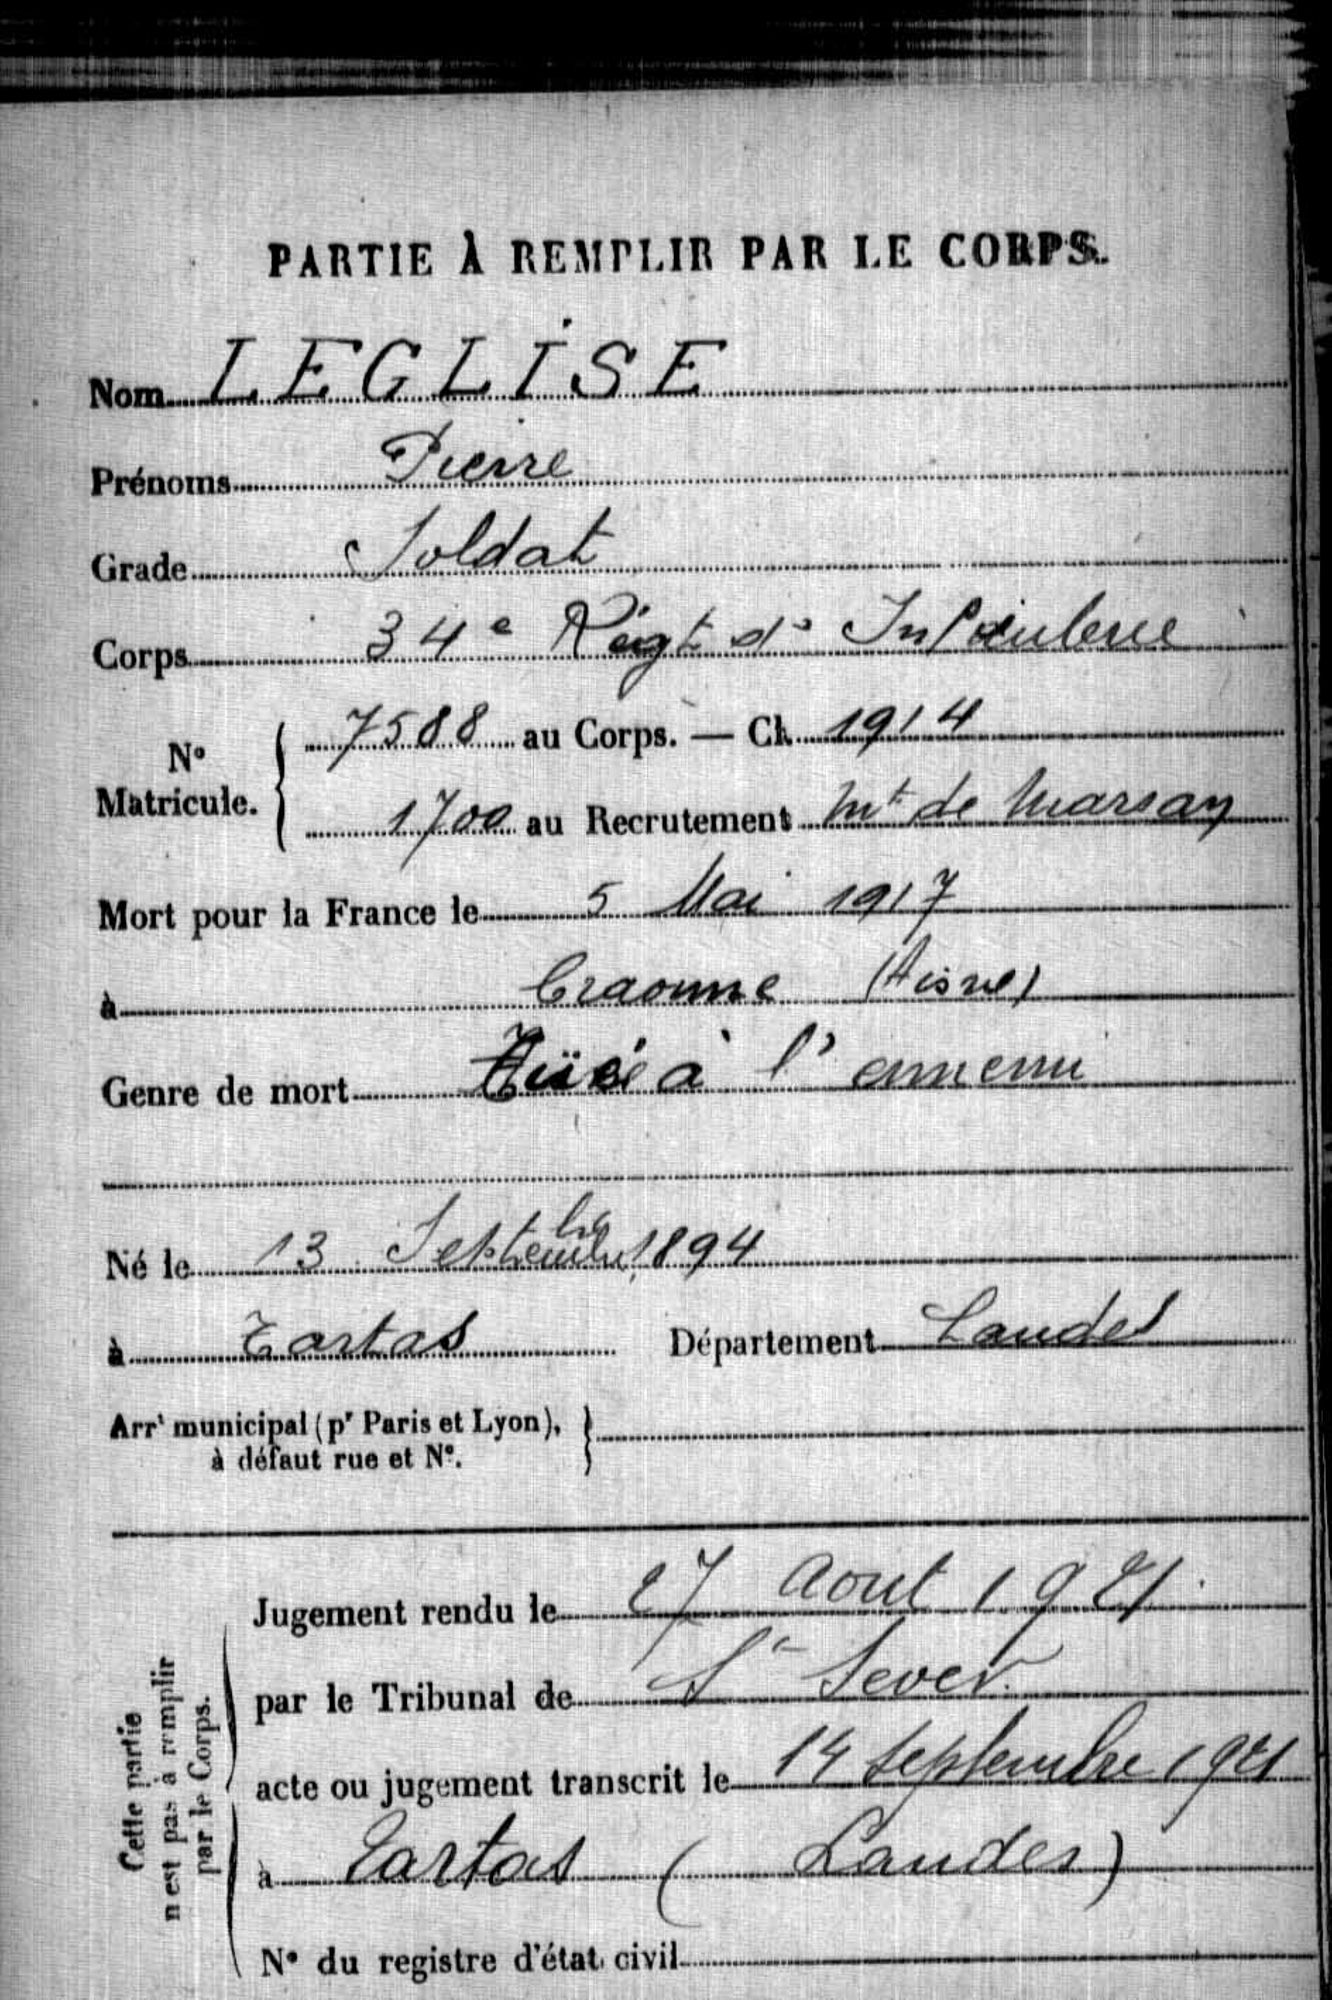 PARTIE À REMPLIR PAR LE CORPS.
Nom LEGLISE
Prénoms Pierre
Grade Soldat
Corps 34e Régt d' Infanterie
7588 au Corps. — Cl. 1914
No
Matricule.
1700 au Recrutement Mt de Marsan
Mort pour la France le 5 Mai 1917
à Craonne (Aisne)
Genre de mort Tué à l'ennemi
Né le 13 Septembre 1894
à Tartas Département Landes
Arrt municipal (pr Paris et Lyon),
à défaut rue et No.
Jugement rendu le 27 Aout 1921
par le Tribunal de St Sever
acte ou jugement transcrit le 14 Septembre 1921
à Tartas (Landes)
No du registre d'état civil
Cette partie
n'est pas à remplir
par le Corps.